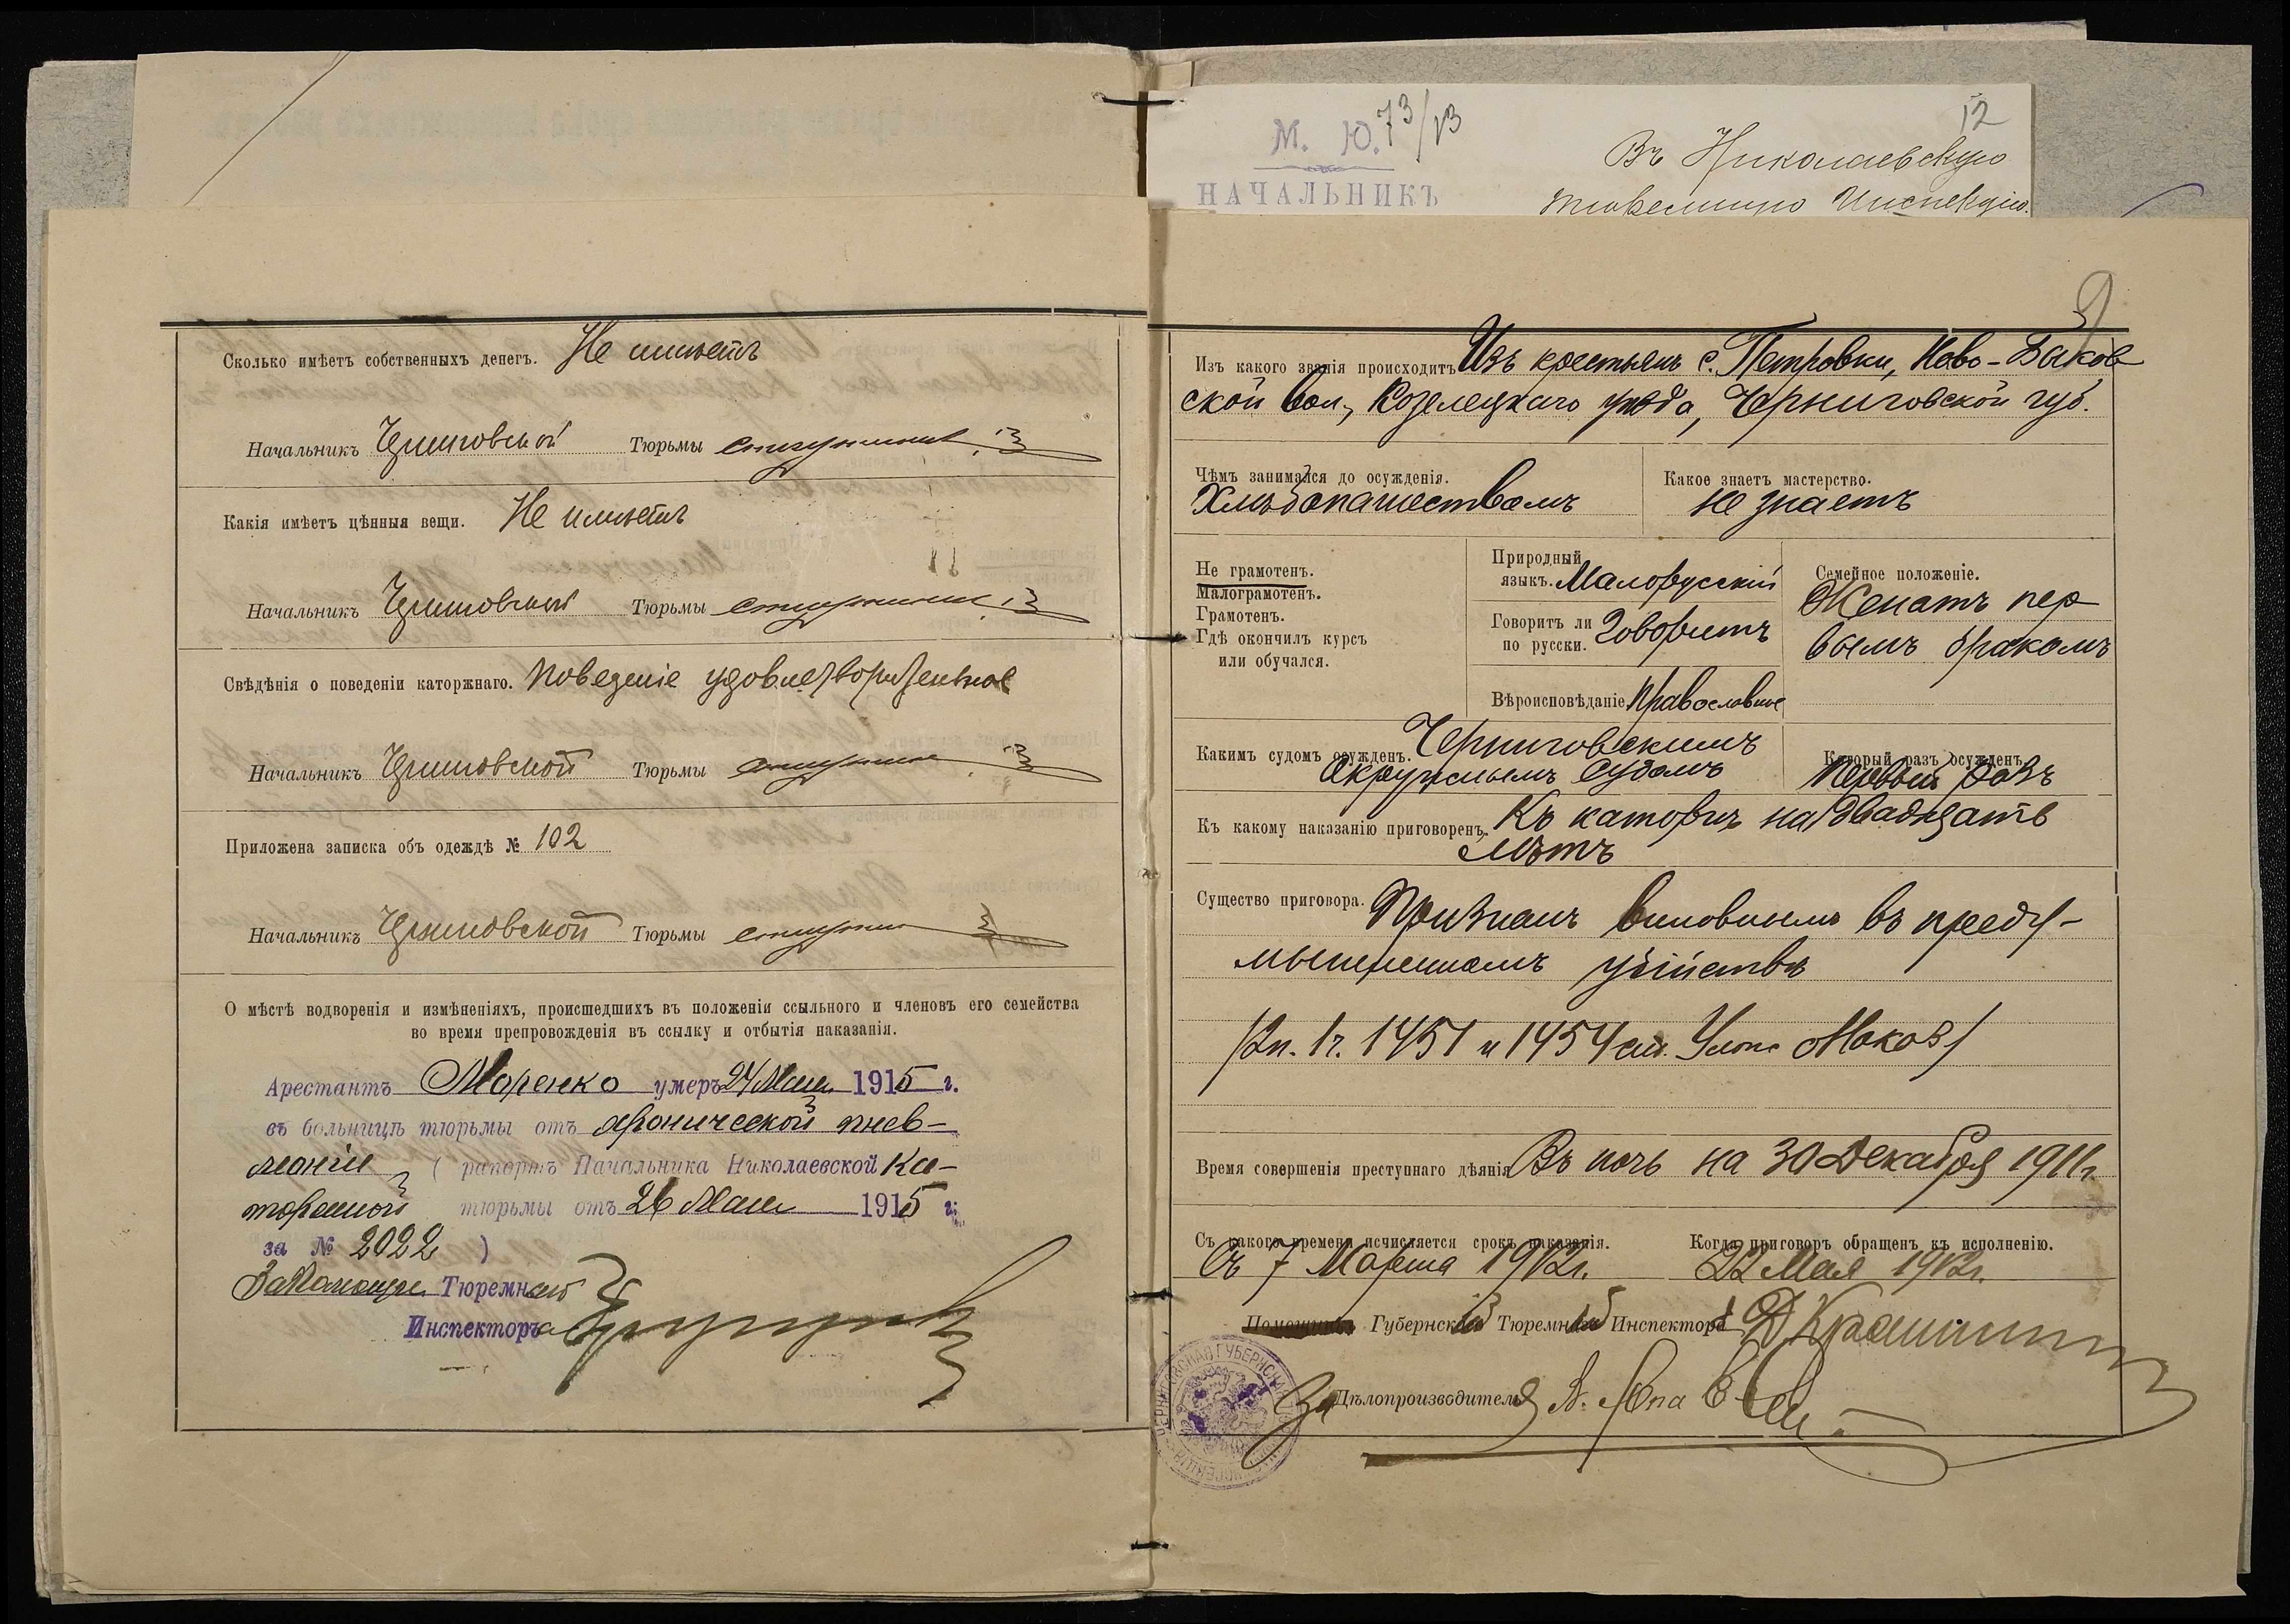 Сколько имѣетъ собственныхъ денегъ. Не имѣетъ
Начальникъ Черниговской Тюрьмы
Какія имѣетъ цѣнныя вещи. Не имѣетъ
Начальникъ Черниговской Тюрьмы
Свѣдѣнія о поведеніи каторжнаго. Поведеніе удовлетворительное
Начальникъ Черниговской Тюрьмы
Приложена записка объ одеждѣ № 102
Начальникъ Черниговской Тюрьмы
О мѣстѣ водворенія и измѣненіяхъ, происшедшихъ въ положеніи ссыльного и членовъ его семейства
во время препровожденія въ ссылку и отбытія наказанія.
Арестантъ Моренко умеръ 24 Мая 1915 г.
въ больницѣ тюрьмы отъ хронической пнев-
моніи ( рапортъ Начальника Николаевской Ка-
торжной тюрьмы отъ 26 Мая 1915 г.
за № 2022 )
Тюремнаго
Инспектора
М. Ю. 73/13
НАЧАЛЬНИКЪ
12
Въ Николаевскую
Тюремную Инспекцію.
9
Изъ какого званія происходитъ Изъ крестьянъ с. Петровки, Ново-Басков
ской вол., Козелецкаго уѣзда, Черниговской губ.
Чѣмъ занимался до осужденія.
Хлѣбопашествомъ
Какое знаетъ мастерство.
не знаетъ
Не грамотенъ.
Малограмотенъ.
Грамотенъ.
Гдѣ окончилъ курсъ
или обучался.
Природный
языкъ. Малорусскій
Говоритъ ли
по русски. Говоритъ
Вѣроисповѣданіе Православное
Семейное положеніе.
Женатъ пер
вымъ бракомъ
Какимъ судомъ осужденъ. Черниговскимъ
Окружнымъ Судомъ
Который разъ осужденъ.
Первый разъ
Къ какому наказанію приговоренъ. Къ каторгѣ на двадцать
лѣтъ
Существо приговора. Признанъ виновнымъ въ преду-
мышленномъ убійствѣ
/2п. 1ч. 1451 и 1454 ст. Улож о Наказ/
Время совершенія преступнаго дѣянія Въ ночь на 30 Декабря 1911г.
Съ какого времени исчисляется срокъ наказанія.
Съ 7 Марта 1912г.
Когда приговоръ обращенъ къ исполненію.
22 Мая 1912г.
Помощникъ Губернскій Тюремный Инспекторъ
За Дѣлопроизводителя